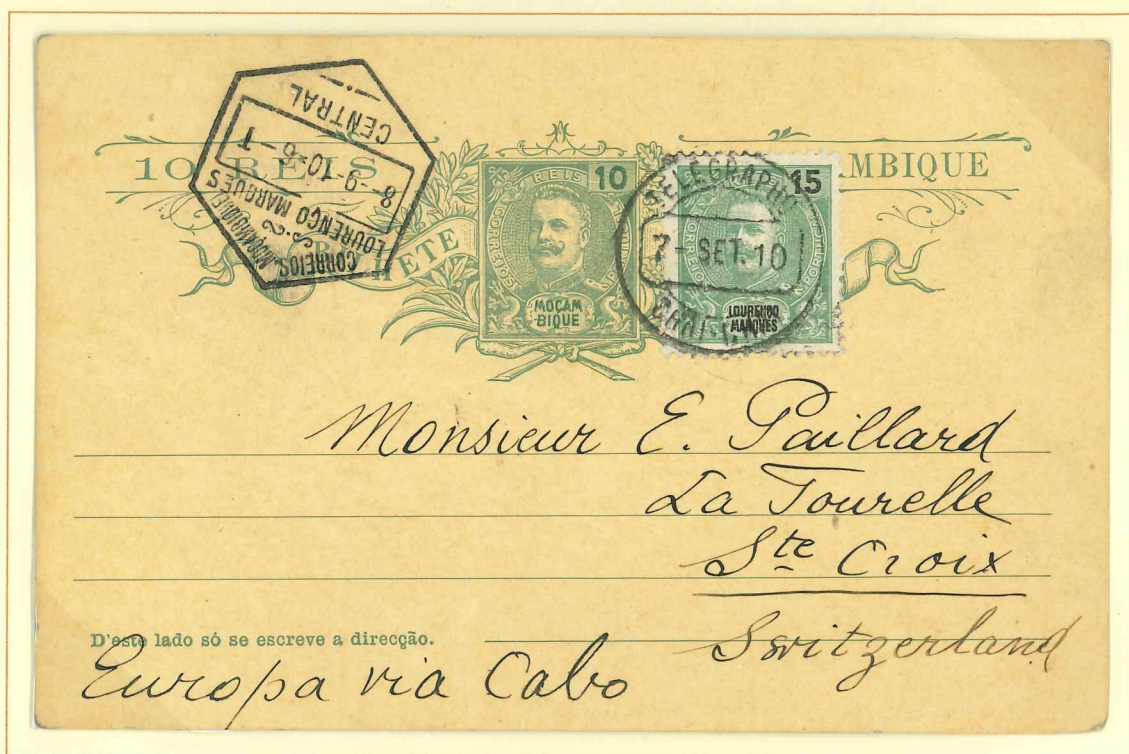 CORREIOS MOÇAMBIQUE
LOURENÇO MARQUES
8-9-10-6-T
CENTRAL
10 REIS
MOÇAMBIQUE
REIS 10
CORREIOS
MOÇAM
BIQUE
15
PORTUGAL
LOURENÇO
MARQUES
7-SET.10
Monsieur E. Paillard
La Tourelle
Ste Croix
Switzerland
D'este lado só se escreve a direcção.
Europa via Cabo